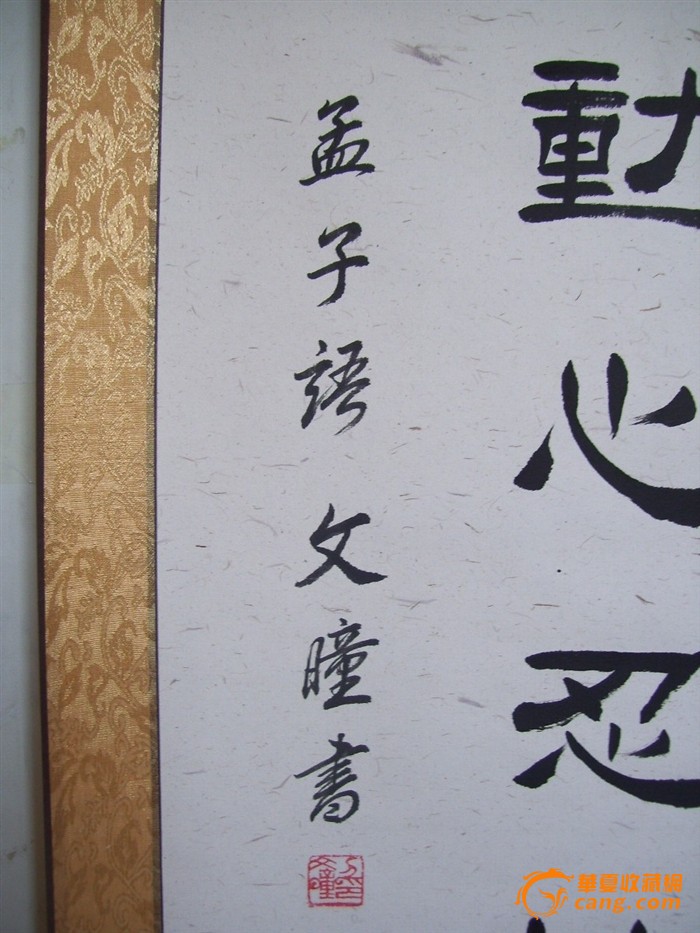 動心忍
孟子語 文曈書
華夏收藏網
cang.com